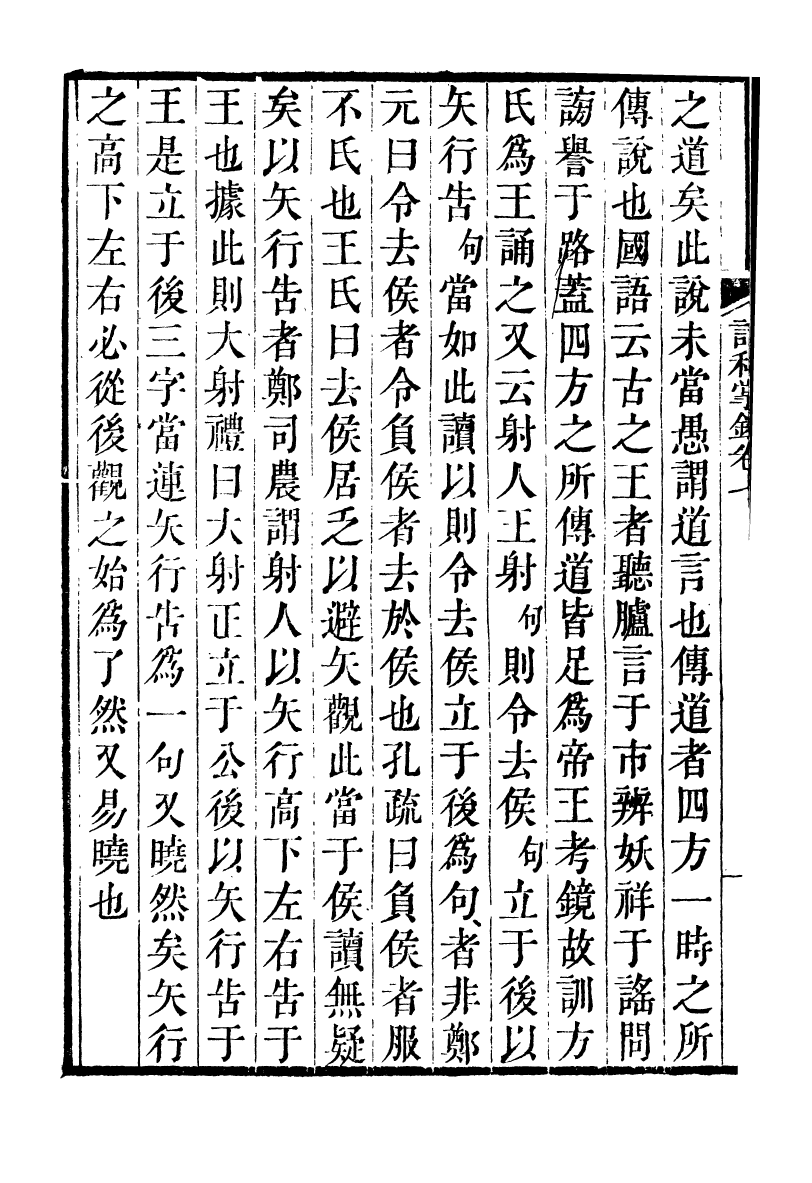 之道矣此說未當愚謂道言也傳道者四方一時之所
傳說也國語云古之王者聽臚言于市辨妖祥于謠問
謗譽于路蓋四方之所傳道皆足爲帝王考鏡故訓方
氏爲王誦之又云射人王射句則令去侯句立于後以
矢行告句當如此讀以則令去侯立于後爲句者非鄭
元曰令去侯者令負侯者去於侯也孔疏曰負侯者服
不氏也王氏曰去侯居乏以避矢觀此當于侯讀無疑
矣以矢行告者鄭司農謂射人以矢行高下左右告于
王也據此則大射禮曰大射正立于公後以矢行告于
王是立于後三字當連矢行告爲一句又曉然矣矢行
之高下左右必從後觀之始爲了然又易曉也
卷一